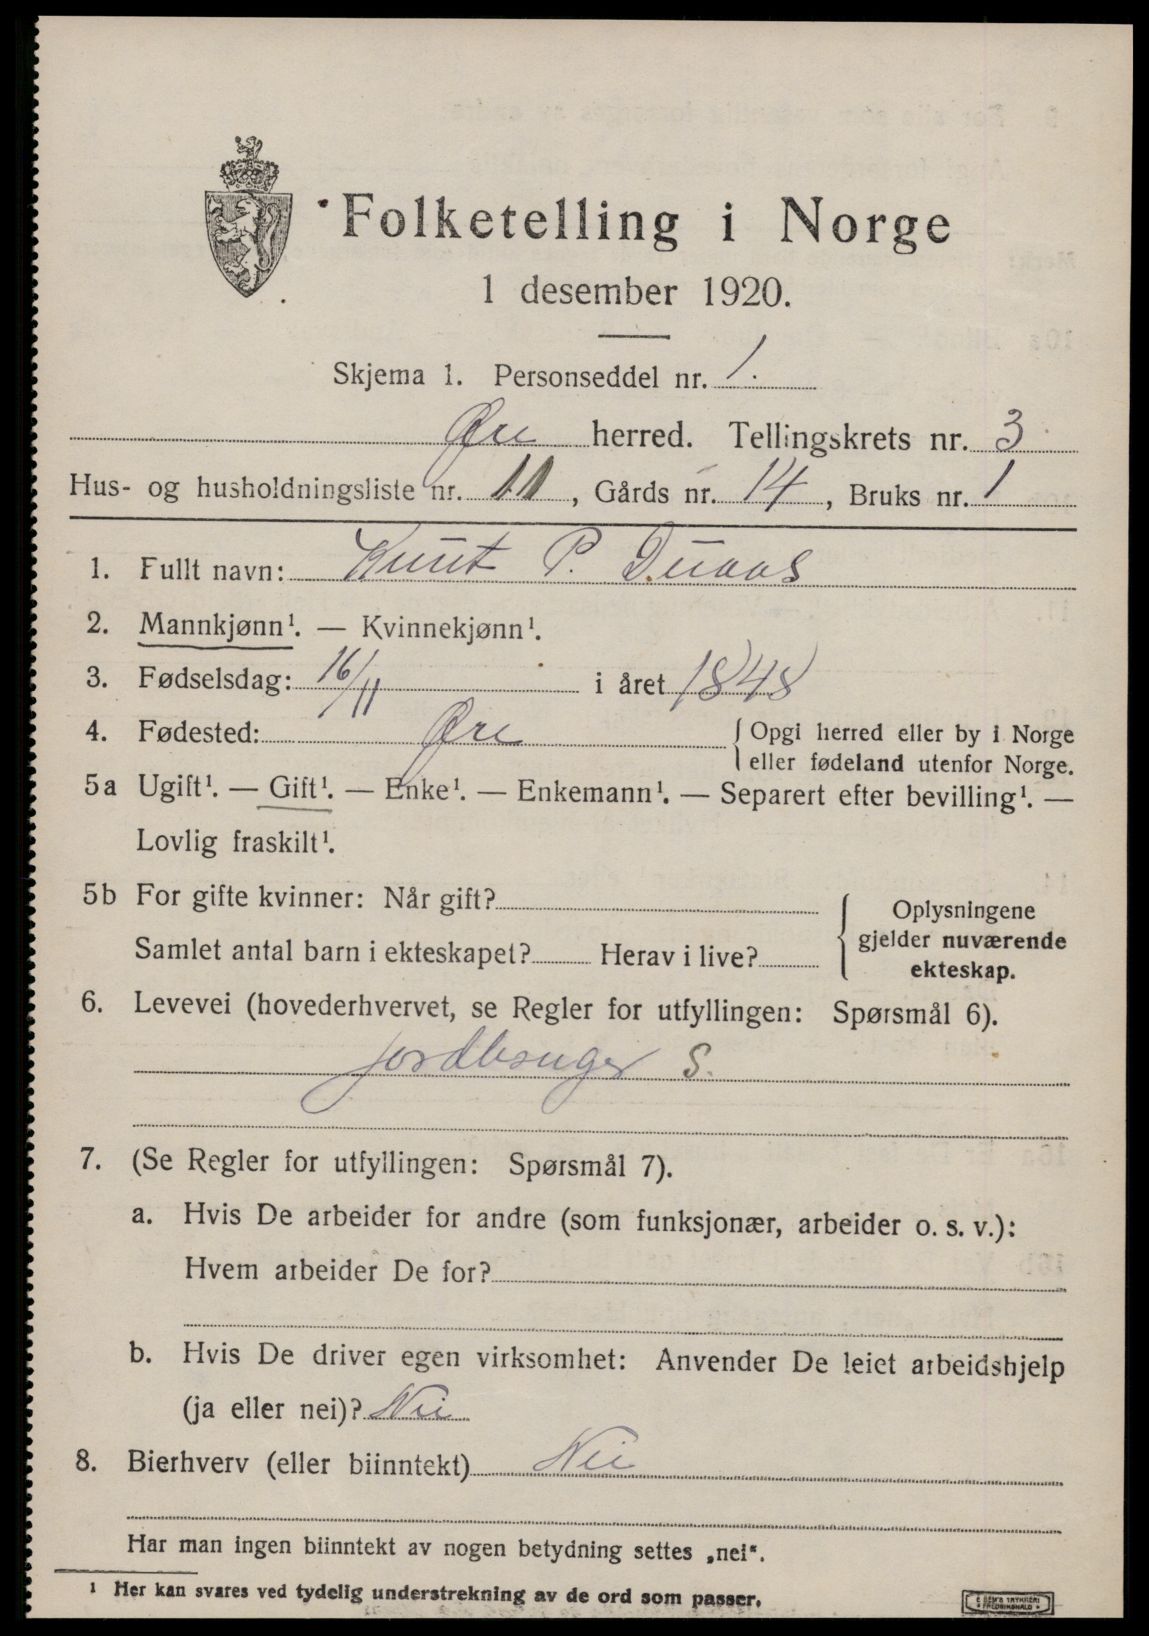 Folketelling i Norge
1 desember 1920.
Skjema 1. Personseddel nr. 1.
Øre herred. Tellingskrets nr. 3
Hus- og husholdningsliste nr. 11, Gårds nr. 14, Bruks nr. 1
1. Fullt navn: Knut P. Duaas
2. Mannkjønn¹. — Kvinnekjønn¹.
3. Fødselsdag: 16/11 i året 1848
4. Fødested: Øre { Opgi herred eller by i Norge
eller fødeland utenfor Norge.
5a Ugift¹. — Gift¹. — Enke¹. — Enkemann¹. — Separert efter bevilling¹. —
Lovlig fraskilt¹.
5b For gifte kvinner: Når gift?
Samlet antal barn i ekteskapet? Herav i live?
{ Oplysningene
gjelder nuværende
ekteskap.
6. Levevei (hovederhvervet, se Regler for utfyllingen: Spørsmål 6).
jordbruger S.
7. (Se Regler for utfyllingen: Spørsmål 7).
a. Hvis De arbeider for andre (som funksjonær, arbeider o. s. v.):
Hvem arbeider De for?
b. Hvis De driver egen virksomhet: Anvender De leiet arbeidshjelp
(ja eller nei)? Nei
8. Bierhverv (eller biinntekt) Nei
Har man ingen biinntekt av nogen betydning settes „nei“.
¹ Her kan svares ved tydelig understrekning av de ord som passer.